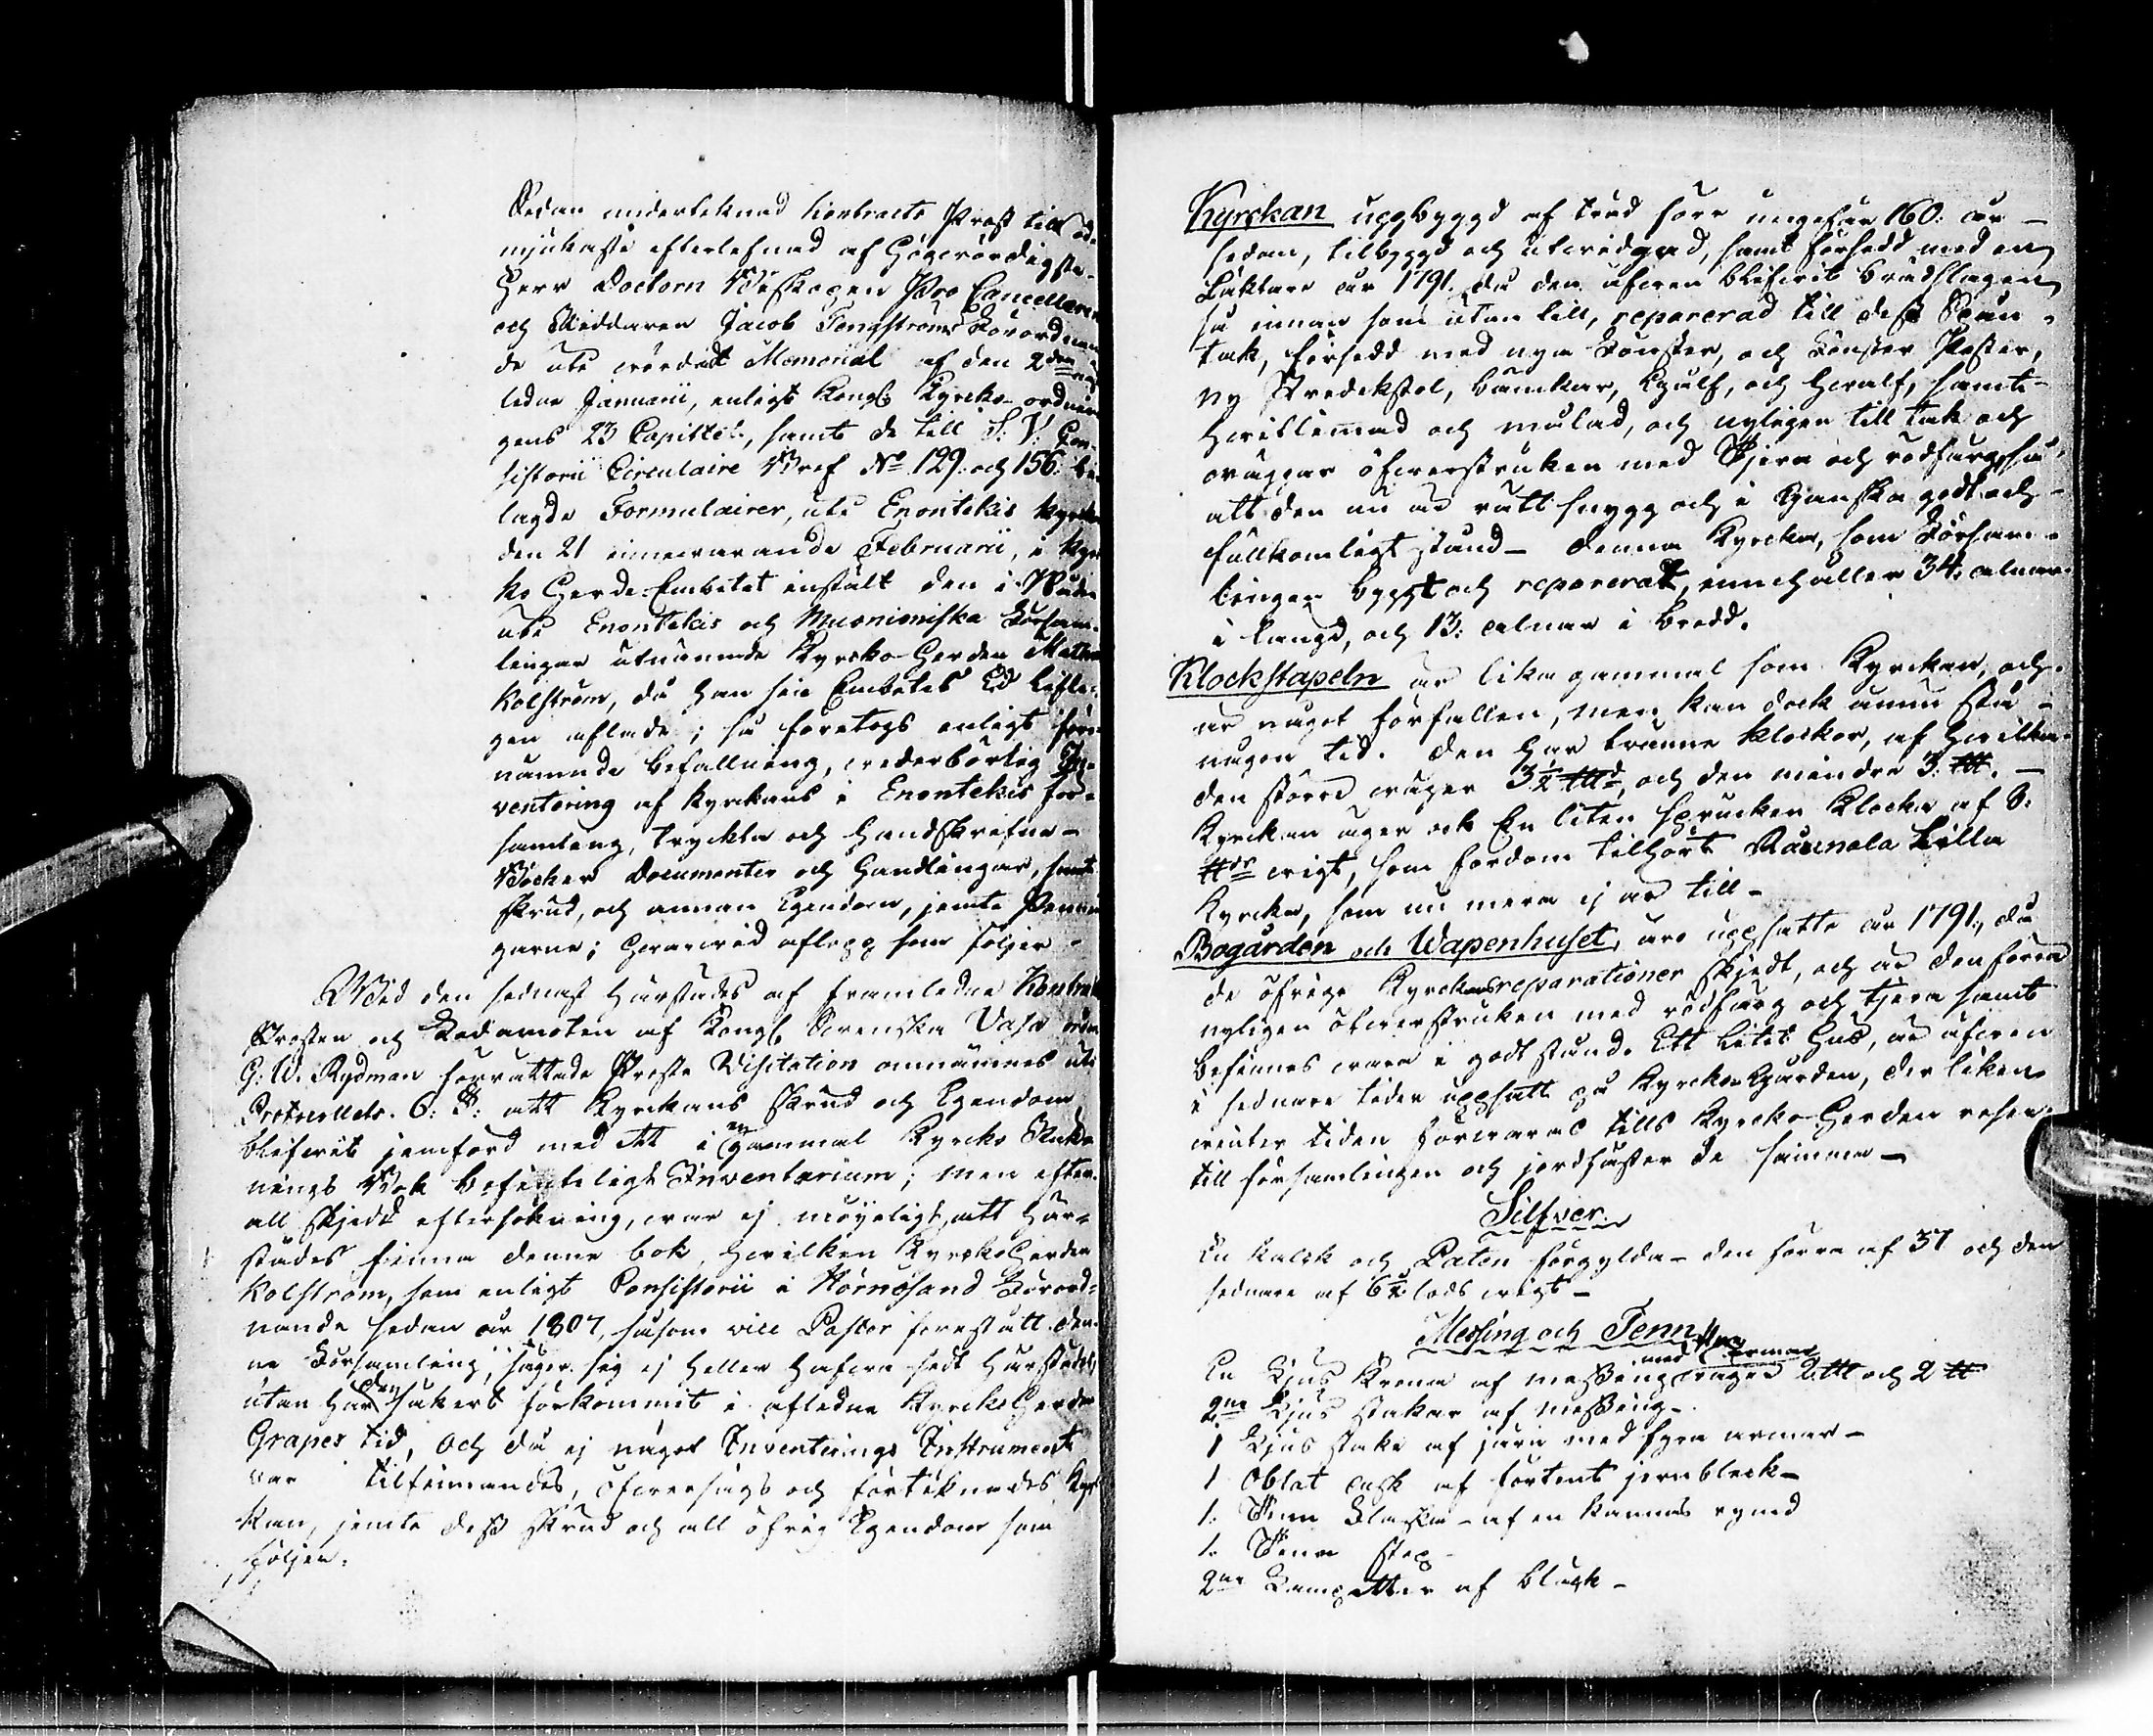 Sedan undertecknad Contracts Prost till öd-
mjukaste efterlefnad af Högvördigste
Herr Doctorn Biskopen Pro Cancelleren
och Riddaren Jacob Tengströms Förordnan-
de uti wördadt Memorial af den 2dra nast-
ledne Januarii, enligt Kongl: Kyrcko-ordnin-
gens 23 Capittel, samt de till S: V: Con-
sistorii Circulaire Bref No 129. och 156. bi-
lagde Formulairer, uti Enontekis Kyrcka
den 21 innewarande Februarii, i Kyr-
ko Herde-Embetet instält den i Nåder
uti Enontekis och Muonioniska Försam-
lingar utnämnde Kyrcko-Herden Mathias
Kolström, då han sin Embetes Ed lefli-
gen aflade; så foretogs enligt förr-
nämnde befallning, wederbörlig In-
ventering af kyrckans i Enontekis för-
samling, tryckta och handskrifne
Böcker Documenter och handlingar, samt
skrud, och annan Egendom, jemte Pennin-
garne; hwarwid aflopp som följer.
Wid den sednast härstädes af framledne Kontrakts
Prosten och Ledamoten af Kongl. Svenska Vasa orden
G: W. Rydman förrättade Proste Visitation omnämnes uti
Protocollets. 6: §: att Kyrckans skrud och Egendom
blifwit jemförd med ett i en gammal Kyrcko Räke-
nings Bok befinteligt Inventarium; men efter
all skjedd eftersökning, war ej möjeligt, att här-
städes finna denne bok, hwilken KyrckoHerden
Kolström, som enligt Consistorii i Hörnösand Förord-
nande sedan år 1807, såsom vice Pastor förestått den-
ne Församling, säger sig ej heller hafwa sedt härstädes,
utan har den säkert förkommit i afledne KyrckoHerden
Grapes tid, och då ej något Inventerings Instrument
var tilfinnandes, öfwersågs och förteknades Kyr-
kan, jemte dess skrud och all öfrig Egendom som
följer.
Kyrckan uppbyggd af träd före ungefär 160: år
sedan, tilbyggd och utwidgad, samt försedd med en
Läktare år 1791. då den äfwen blifwit brädslagen
så innan som utan till, reparerad till dess Spån-
tak, försedd med nya Fönster, och Fönster Poster,
ny Predikstol, bänkar, Gålf, och Hwalf, samt
Hwitlimad och målad, och nyligen till tak och
wäggar öfwerstruken med Tjera och rödfärg, så
att den nu är rätt snygg och i Ganska godt och
fullkomligt stånd - Denna Kyrcka, som Försam-
lingen byggt och reparerat, innehåller 34: alnar
i längd, och 13: alnar i bredd.
Klockstapeln är lika gammal som Kyrckan, och
är något förfallen, men kan dock ännu stå
någon tid. Den har tvänne klockor, af hwilka
den större wäger 3½ ℔d och den mindre 3. ℔. -
Kyrckan äger ock En liten sprucken Klocka af 8:
℔r wigt, som fordom tilhört Raunala Lilla
Kyrcka, som nu mera ej är till -
Bogården och Wapenhuset, äro uppsatte år 1791., då
de öfrige Kyrckans reparationer skjedt, och är den förra
nyligen öfwerstruken med rödfärg och tjera samt
befinnes wara i godt stånd. Ett litet hus, är äfwen
i sednare tider uppsatt på Kyrcko-Gården, der liken
winter tiden förwaras tills Kyrcko-Herden reser
till församlingen och jordfäster de samma -
Silfver.
En kalck och Paten förgylda - den förra af 37 och den
sednare af 6½ lods wigt -
Messing och Tenn
En Ljus Krona af messing med armar wäger 2 ℔ och 2 ℔
2ne Ljus stakar af messing -
1 Ljus stake af järn med fyra armar -
1 Oblat ask af förtent jernbleck -
1. Tenn Flaska - af en kannas rymd
1. Tenn stop -
2ne Lampetter af bleck -